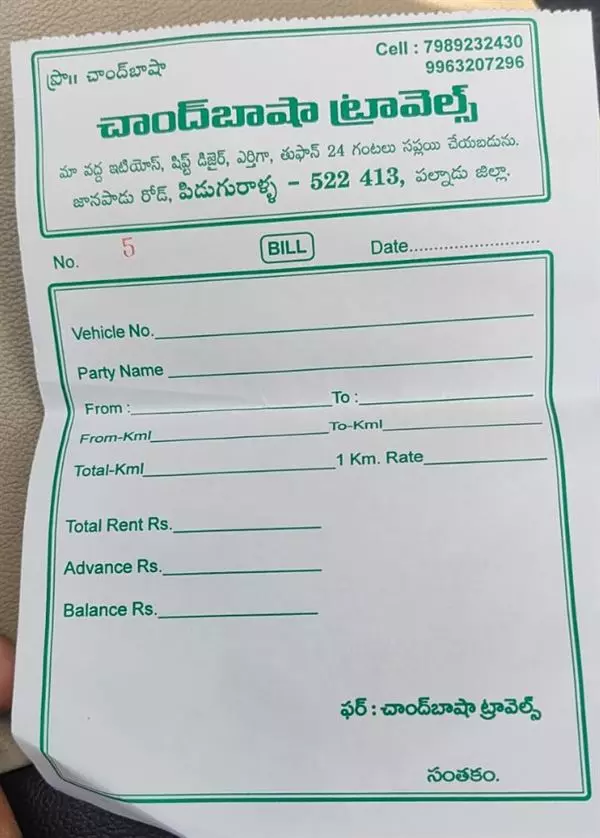 ప్రొ॥ చాంద్‌బాషా
Cell : 7989232430
9963207296
చాంద్‌బాషా ట్రావెల్స్
మా వద్ద ఇటియోస్, షిఫ్ట్ డిజైర్, ఎర్టిగా, తుఫాన్ 24 గంటలు సప్లయి చేయబడును.
జానపాడు రోడ్, పిడుగురాళ్ళ - 522 413, పల్నాడు జిల్లా.
No. 5 BILL Date..........................
Vehicle No.
Party Name
From : To :
From-Kml To-Kml
Total-Kml 1 Km. Rate
Total Rent Rs.
Advance Rs.
Balance Rs.
ఫర్ : చాంద్‌బాషా ట్రావెల్స్
సంతకం.